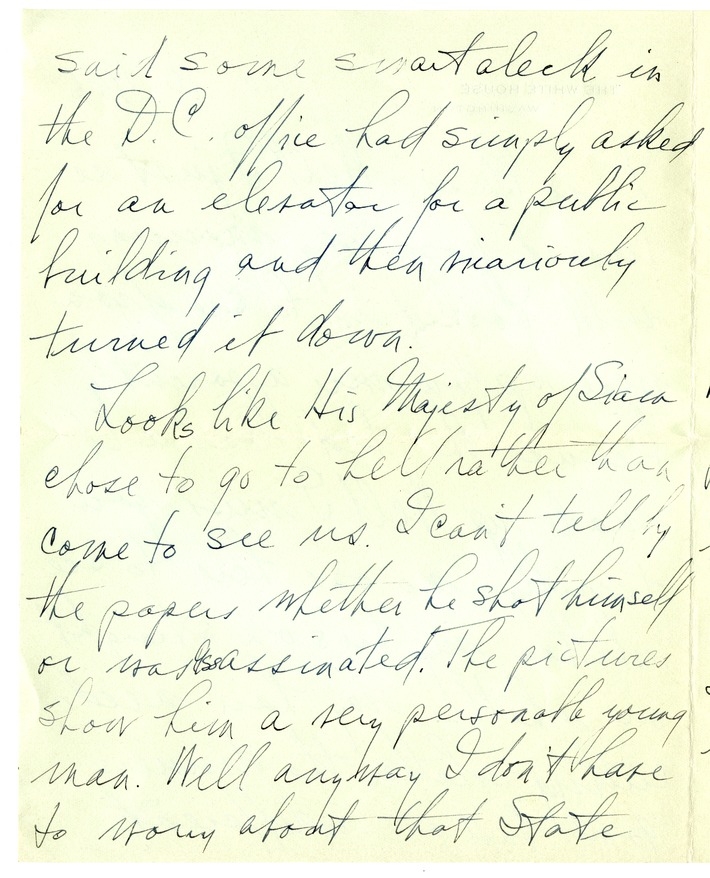 said some smart aleck in
the D.C. office had simply asked
for an elevator for a public
building and then
turned it down.
Looks like His Majesty of Siam
chose to go to hell rather than
come to see us. I can't tell by
the papers whether he shot himself
or was assassinated. The pictures
show him a very personable young
man. Well anyway I don't have
to worry about that State
THE WHITE HOUSE